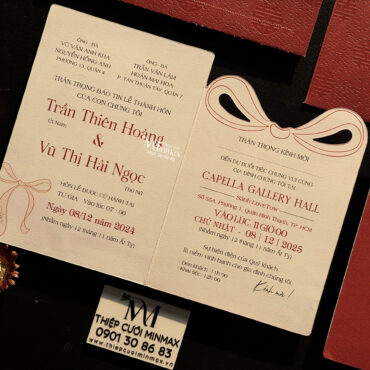 ÔNG - BÀ
VŨ VĂN ANH KHA
NGUYỄN HỒNG ANH
PHƯỜNG 13, QUẬN 4
ÔNG - BÀ
TRẦN VĂN LÂM
HOÀN MAI HOA
P. TÂN THUẬN TÂY, QUẬN 7
TRÂN TRỌNG BÁO TIN LỄ THÀNH HÔN
CỦA CON CHÚNG TÔI
Trần Thiên Hoàng
Út Nam
&
Vũ Thị Hải Ngọc
Thứ Nữ
HÔN LỄ ĐƯỢC CỬ HÀNH TẠI
TƯ GIA VÀO LÚC 07 : 00
Ngày 08/12 năm 2024
(Nhằm ngày 12 tháng 11 năm Ất Tỵ)
TRÂN TRỌNG KÍNH MỜI
ĐẾN DỰ BUỔI TIỆC CHUNG VUI CÙNG
GIA ĐÌNH CHÚNG TÔI TẠI
CAPELLA GALLERY HALL
Sảnh LoveTow
Số 52A, Phường 1, Quận Bình Thạnh, TP. HCM
VÀO LÚC, 11 GIỜ 00
CHỦ NHẬT - 08 | 12 | 2025
(Nhằm ngày 12 tháng 11 năm Ất Tỵ)
Sự hiện diện của Quý khách
là niềm vinh hạnh cho gia đình chúng tôi
Đón khách: 11h00
Khai tiệc: 12h00
Kính mời!
THIỆP CƯỚI MINMAX
0901 30 86 83
www.thiepcuoiminmax.vn